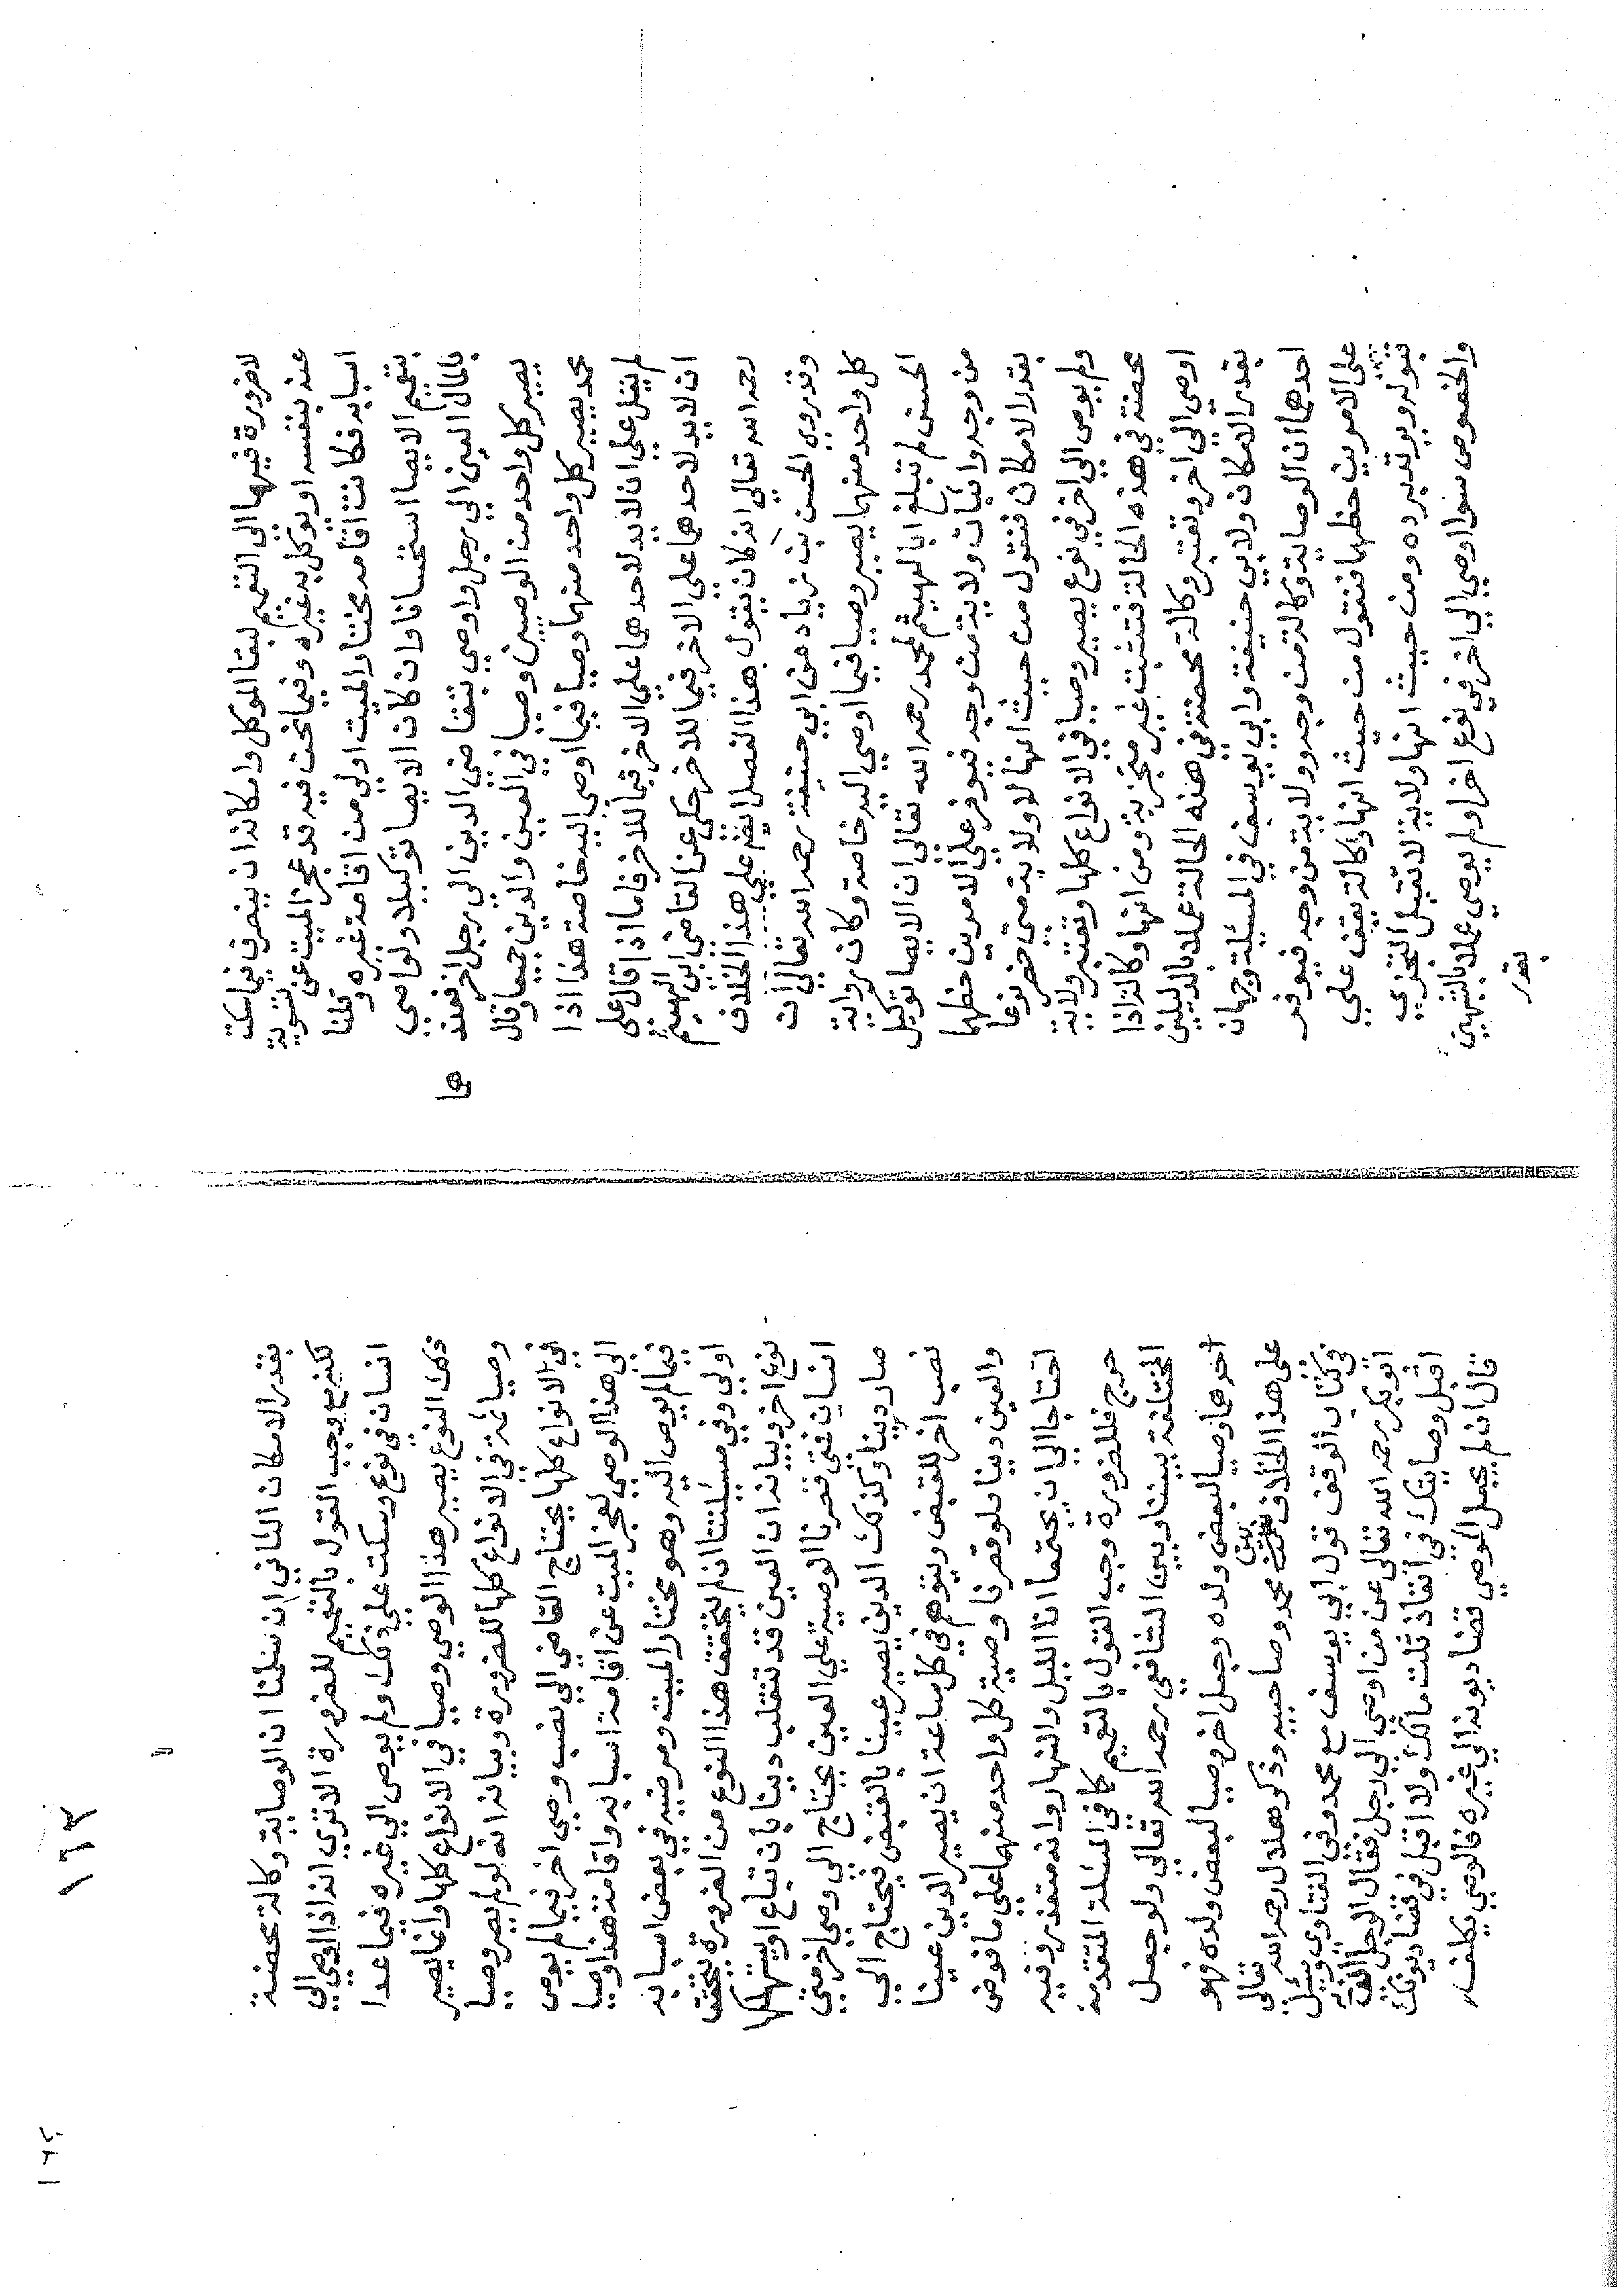 لا ضرورة فيها الى التعميم لبقا الموكل وامكانه ان يتصرف فيما سكت
عنه بنفسه او يوكل به غيره وفيما نحن فيه قد عجز الميت عن تسوية
اسبابه فكانت اقامة مختار الميت اولى من اقامة غيره وقلنا
بتعميم الايصا استحسانا وان كان الايصا توكيلا ولو اوصى
بالمال العين الى رجل واوصى بتقاضي الدين الى رجل اخر فعند
ها
يصير كل واحد من الوصيين وصيا في العين والدين جميعا وقال
محمد يصير كل واحد منهما وصيا فيما اوصى اليه خاصة هذا اذا
لم يقل على ان لا يد لاحدهما على الاخر فيما للاخر فاما اذا قال على
ان لا يد لاحدهما على الاخر فيما للاخر حكي عن القاضي ابي الهيثم
رحمه الله تعالى انه كان يقول هذا الفصل ايضا على هذا الخلاف
وقد روى الحسن بن زياد عن ابي حنيفة رحمه الله تعالى ان
كل واحد منهما يصير وصيا فيما اوصى اليه خاصة وكان رواية
الحسن لم تبلغ ابا الهيثم لمحمد رحمه الله تعالى ان الايصا توكيل
من وجه واثبات ولاية من وجه فيوفر على الامرين حظهما
بقدر الامكان فنقول من حيث انها ولاية متى خص نوعا
ولم يوص الى اخر في نوع يصير وصيا في الانواع كلها وتعتبر ولاية
محضة في هذه الحالة فتثبت غير متجزية ومن انها وكالة اذا
اوصى الى اخر وتعتبر وكالة محضة في هذه الحالة عملا بالدليلين
بقدر الامكان ولابي حنيفة وابي يوسف في المسئلة وجهان
احدهما ان الوصاية وكالة من وجه وولاية من وجه فيوفر
على الامرين حظهما فنقول من حيث انها وكالة يقف على
قبوله ويرتد برده ومن حيث انها ولاية لا تقبل التجزي
والخصوص سوا اوصى الى اخر في نوع اخر او لم يوصي عملا بالشبهين
بقدر
١٦٣
بقدر الامكان الثاني ان سلمنا ان الوصاية وكالة محضة
لكن مع وجب القول بالتعميم للضرورة الا ترى انه اذا اوصى الى
انسان في نوع وسكت على ذلك ولم يوصى الى غيره فيما عدا
ذلك النوع يصير هذا الوصي وصيا في الانواع كلها وانما يصير
وصيا ثمة في الانواع كلها للضرورة وبيانه انه لو لم يصر وصيا
في الانواع كلها يحتاج القاضي الى نصب وصي اخر فيما لم يوص
الى هذا الوصي لعجز الميت عن اقامة اسبابه واقامة هذا وصيا
فيما لم يوص اليه وهو مختار الميت ومرضيه في بعض اسبابه
اولى وفي مسئلتنا ان لم يتحقق هذا النوع من الضرورة يتحقق
نوع اخر وبيانه ان العين قد تنقلب دينا بان تباع او يستهلكها
انسان فمتى قصرنا الوصية على العين يحتاج الى وصي اخر متى
صار دينا وكذلك الدين يصير عينا بالقبض فيحتاج الى
نصب اخر للقبض ويتوهم في كل ساعة ان يصير الدين عينا
والعين دينا فلو قصرنا وصية كل واحد منهما على ما فوض
احتاجا الى ان يجتمعا انا الليل والنهار وانه متعذر وفيه
حرج فللضرورة وجب القول بالتعميم كما في المسئلة المتقدمة
المختلفة بيننا وبين الشافعي رحمه الله تعالى ولو جعل
احدهما وصيا لبعض ولده وجعل اخر وصيا لبعض ولده فهو
على هذا الخلاف بين محمد وصاحبيه وذكر هلال رحمه الله تعالى
في كتاب الوقف قول ابي يوسف مع محمد وفي الفتاوى وسئل
ابو بكر رحمه الله تعالى عن من اوصى الى رجل فقال الرجل
اقبل وصايتك في انفاذ ثلث مالك ولا اقبل في قضا ديونك
قال ان لم يجعل الموصي قضا ديونه الى غيره فالوصي يكلف
١٦٢